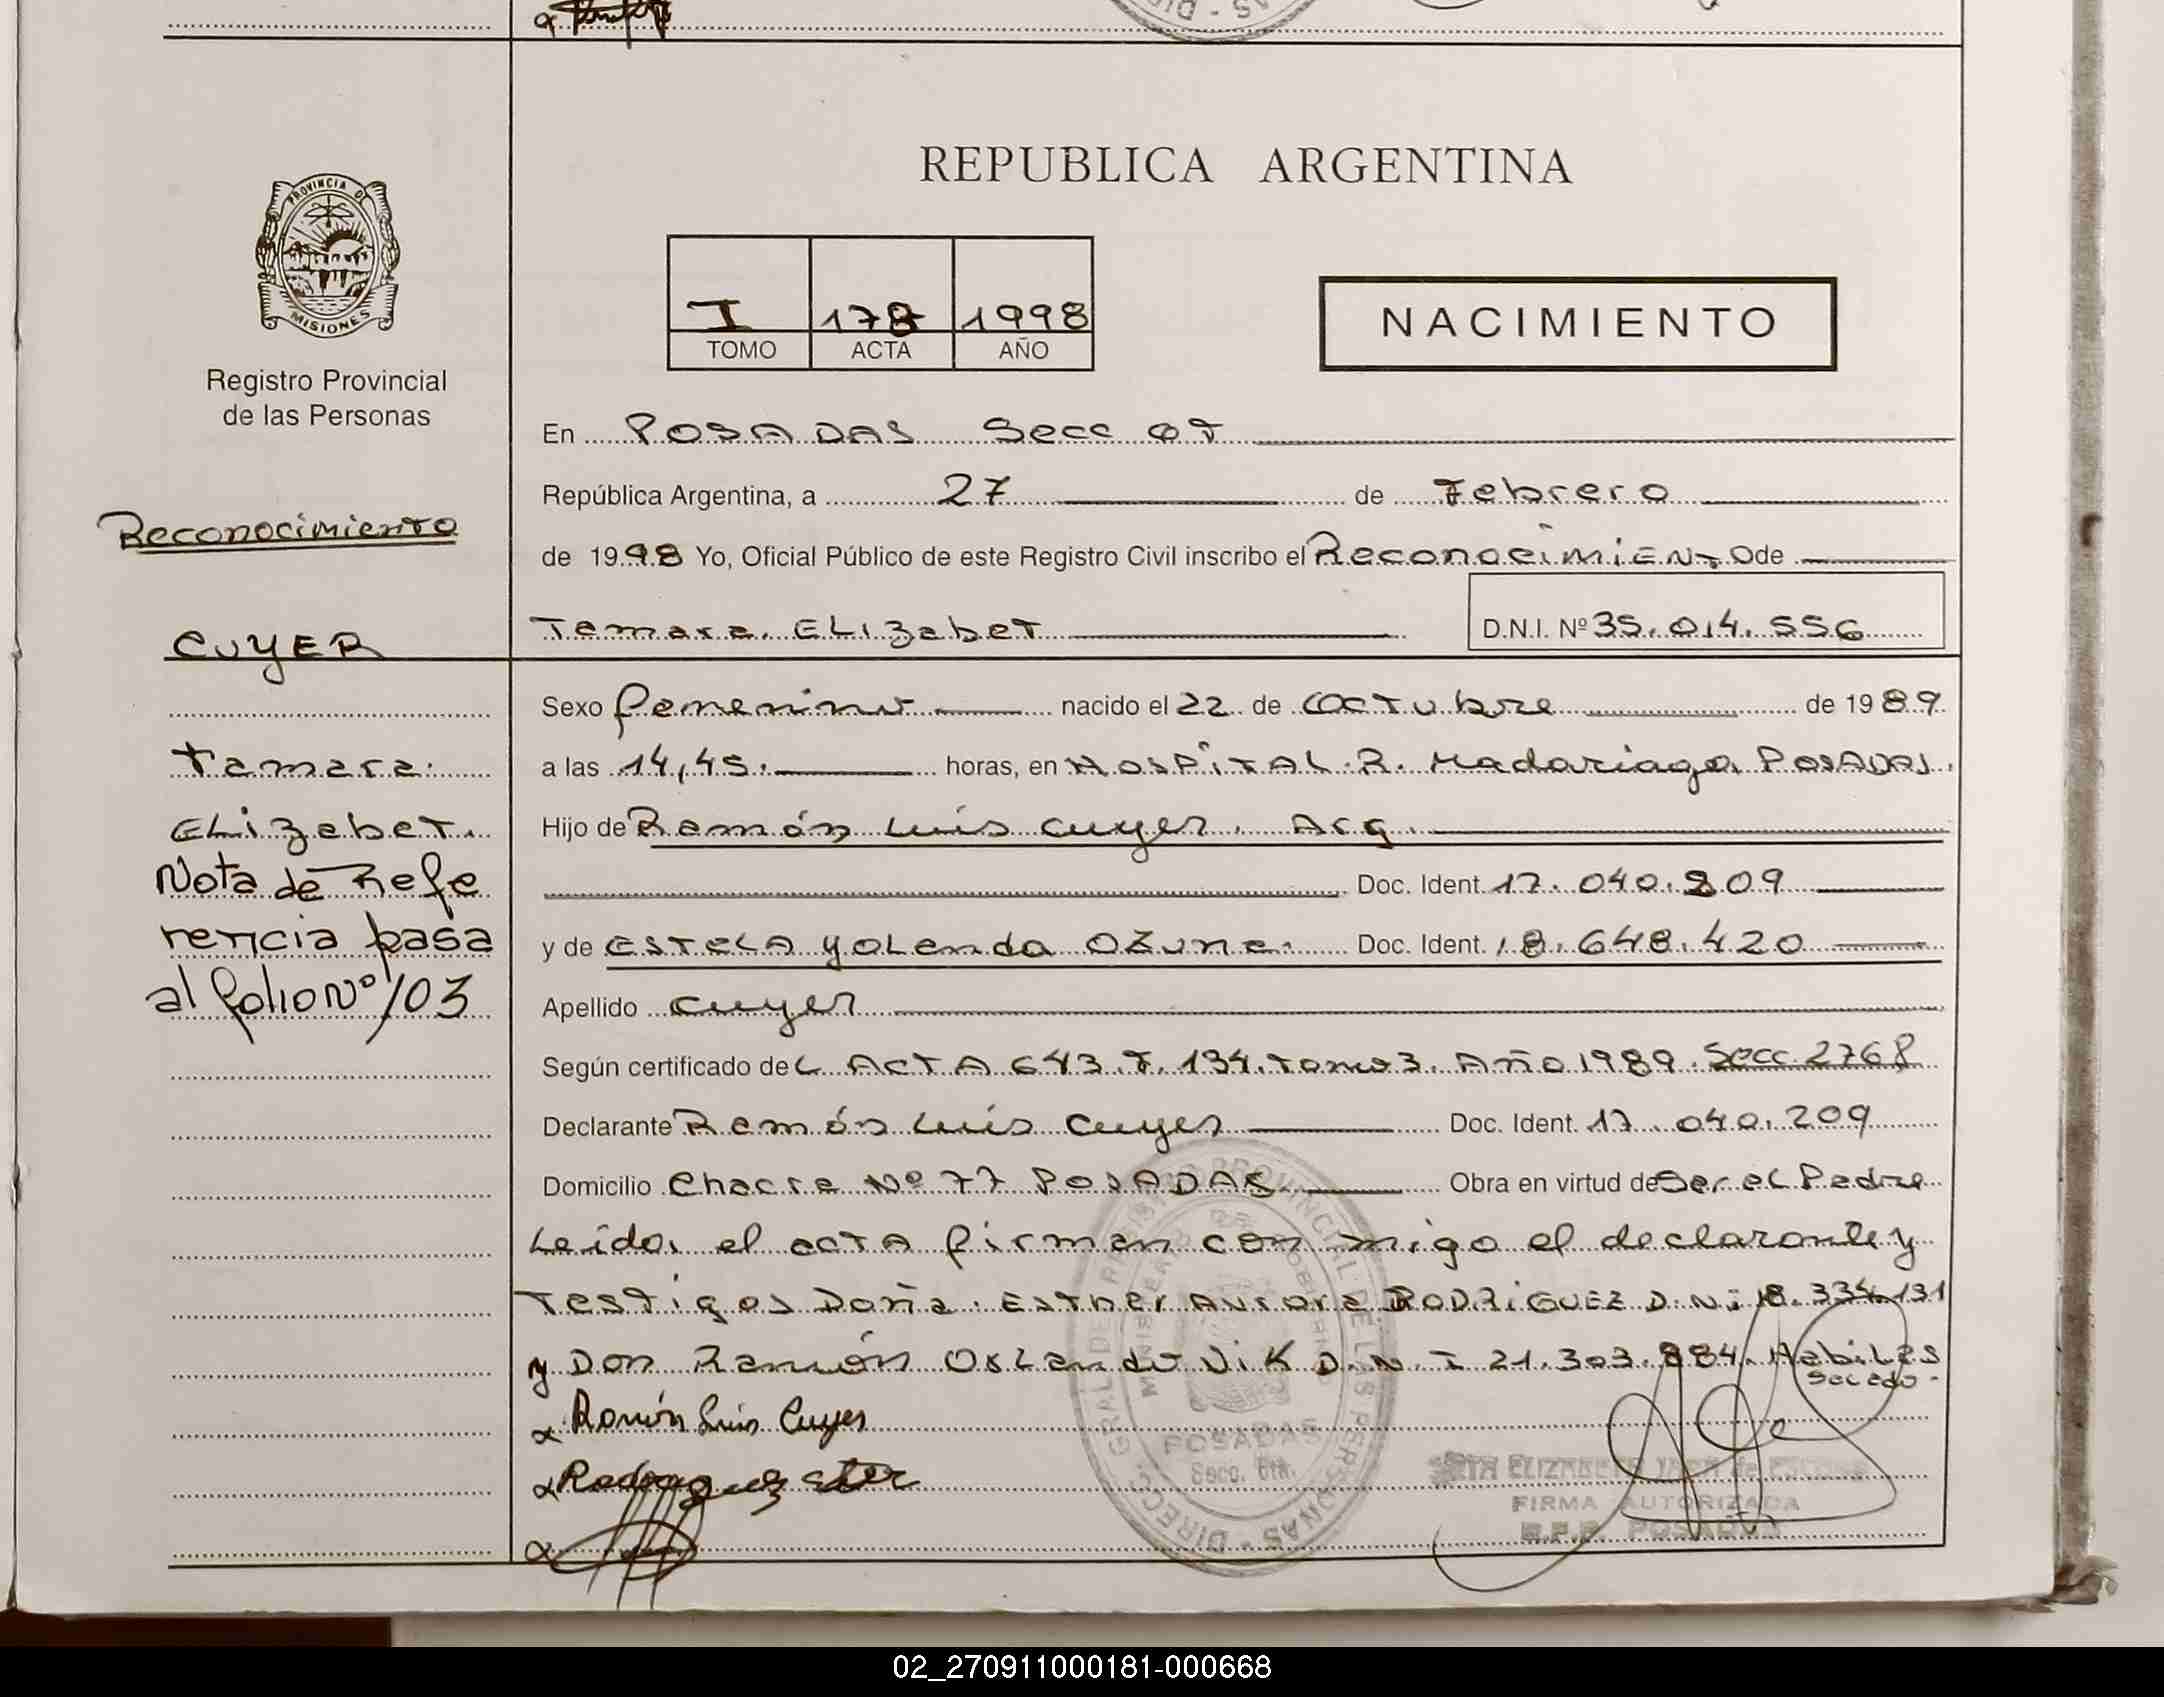 REPUBLICA ARGENTINA
PROVINCIA DE
MISIONES
Registro Provincial
de las Personas
I 178 1998
TOMO ACTA AÑO
NACIMIENTO
Reconocimiento
CUYER
Tamara
ELizabet.
Nota de Refe
rencia pasa
al folio Nº 103
En POSADAS Secc 07
República Argentina, a 27 de Febrero
de 1998 Yo, Oficial Público de este Registro Civil inscribo el Reconocimiento de
Tamara ELizabet D.N.I. Nº 35.014.556
Sexo femenino nacido el 22 de Octubre de 1989
a las 14,45. horas, en HOSPITAL R. Madariaga POSADAS.
Hijo de Ramón Luis Cuyer. Arg.
Doc. Ident. 17.040.209
y de ESTELA YOLanda OZuna. Doc. Ident. 18.648.420
Apellido Cuyer
Según certificado deL ACTA 643.F.134.Tomo 3. Año 1989. Secc 2768
Declarante Ramón Luis Cuyer Doc. Ident. 17.040.209
Domicilio Chacra Nº 77 POSADAS Obra en virtud de Ser el Padre
Leida el acta firman con migo el declarante y
Testigos Doña. Esther Aurora RODRIGUEZ D.N.i 18.334.131
y Don Ramón Orlando ViK D.N.I 21.303.884. Habiles
Ramón Luis Cuyer
Rodriguez Ester
DIRECC. GRAL DE REGISTRO PROVINCIAL DE LAS PERSONAS
MINISTERIO DE GOBIERNO
POSADAS
Secc.
ELIZABETH
FIRMA AUTORIZADA
POSADAS
02_270911000181-000668